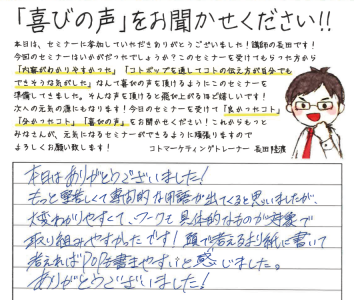 「喜びの声」をお聞かせください!!
本日は、セミナーに参加していただきありがとうございました!講師の長田です!
今回のセミナーはいかがだったでしょうか?このセミナーを受けてもらった方から
「内容がわかりやすかった」「コトポップを通してコトの伝え方が自分でも
できそうな気がした」なんて喜びの声を頂けるようにこのセミナーを
準備してきました。そんな声を頂けると飛び上がるほど嬉しいです!
次への元気の源にもなります!今日のセミナーを受けて「良かったコト」
「分かったコト」「喜びの声」をお聞かせください!これからもっと
みなさんが、元気になるセミナーができるように頑張りますので
よろしくお願い致します!
コトマーケティングトレーナー 長田
本日はありがとうございました!
もっと堅苦しくて専門的な用語が出てくると思いましたが、
大変わかりやすくて、ワークも具体的なものが対象で
取り組みやすかったです!頭で考えるより紙に書いて
考えればPOPも書きやすいと感じました。
ありがとうございました!